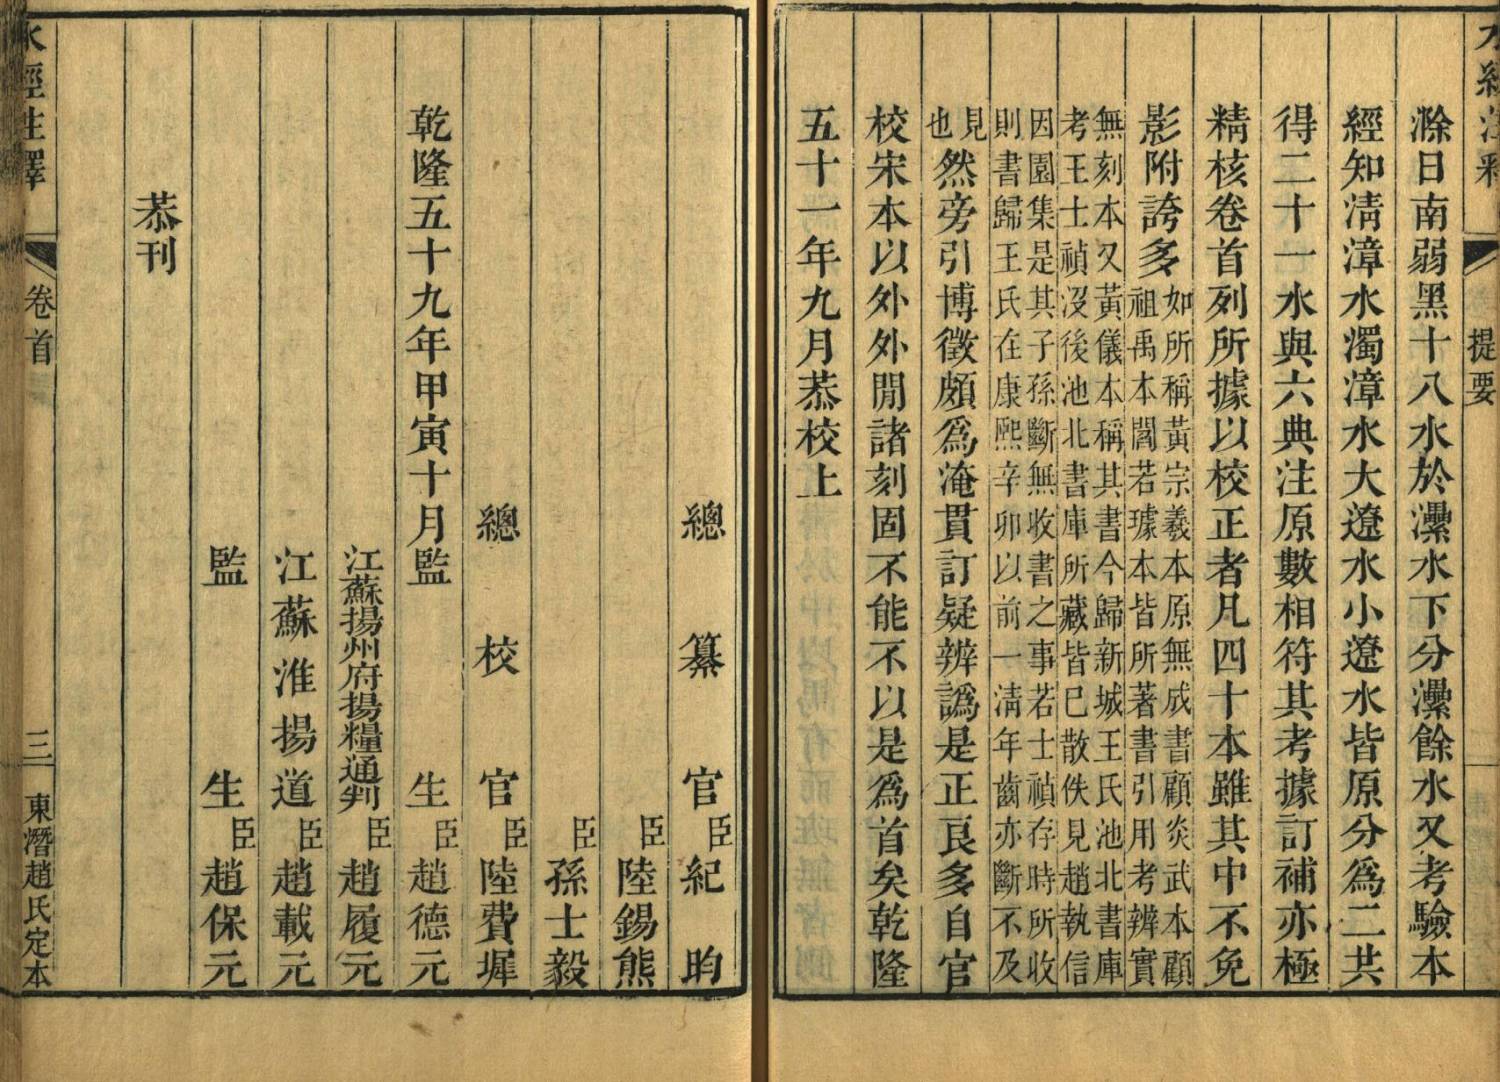 水經注釋
提要
滁日南弱黑十八水於灅水下分灅餘水又考驗本
經知清漳水濁漳水大遼水小遼水皆原分爲二共
得二十一水與六典注原數相符其考據訂補亦極
精核卷首列所據以校正者凡四十本雖其中不免
影附誇多如所稱黃宗羲本原無成書顧炎武本顧
祖禹本閻若璩本皆所著書引用考辨實
無刻本又黃儀本稱其書今歸新城王氏池北書庫
考王士禎沒後池北書庫所藏皆已散佚見趙執信
因園集是其子孫斷無收書之事若士禎存時所收
則書歸王氏在康熙辛卯以前一清年齒亦斷不及
見
也然旁引博徵頗爲淹貫訂疑辨譌是正良多自官
校宋本以外外閒諸刻固不能不以是爲首矣乾隆
五十一年九月恭校上
總纂官臣紀昀
臣陸錫熊
臣孫士毅
總校官臣陸費墀
乾隆五十九年甲寅十月監生臣趙德元
江蘇揚州府揚糧通判臣趙履元
江蘇淮揚道臣趙載元
監生臣趙保元
恭刊
水經注釋
卷首
三
東潛趙氏定本